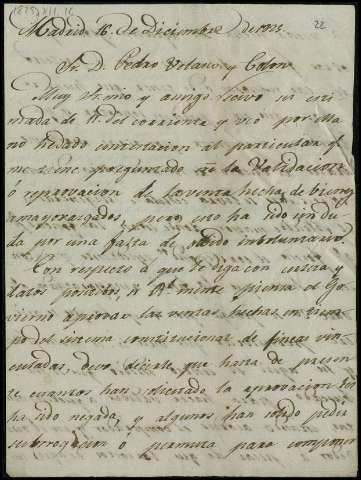 1825.XII.16
22
Madrid 16 de Diciembre de 1825.
Sr. D. Pedro Velasco y
Muy Sr mio y amigo. Recivo su esti
mada de 11 del corriente y veo por ella
no he dado contestacion al particular q.e
me tiene preguntado sobre la validacion
ó reprovacion de la venta hecha de bienes
amayorazgados, pero esto ha sido sin du-
da por una falta de olvido imboluntario.
Con respecto á que le diga con certeza y
datos positivos, si R.l mente piensa el Go-
vierno aprovar las ventas hechas en tiem-
po del sistema constitucional de fincas vin-
culadas, devo decirle que hasta de presen-
te cuantos han solicitado la aprovacion les
ha sido negada, y algunos han solido pedir
subrrogacion ó permuta para componer